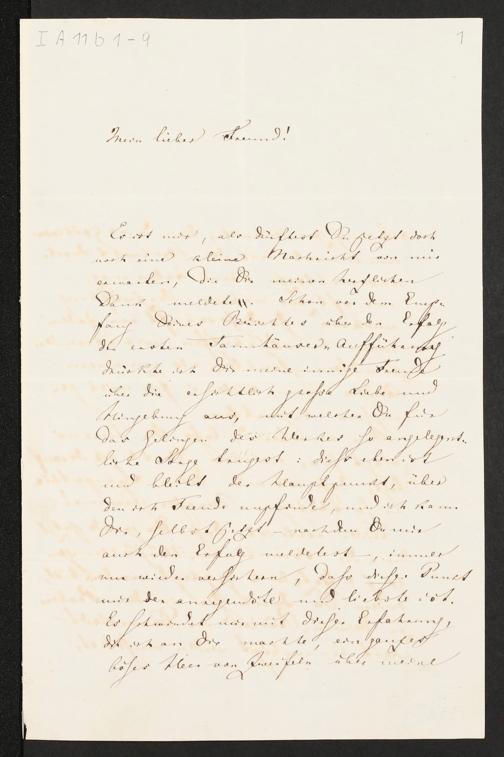 I A 11 b 1-9
1
Mein lieber Freund!
Es ist mir, als dürftest Du jetzt doch
noch eine kleine Nachricht von mir
erwarten, die Dir meinen herzlichen
Dank meldete. Schon vor dem Emp-
fang Deines Berichtes über den Erfolg
der ersten Tannhäuser-Aufführung
drückte ich Dir meine innige Freude
über die ersichtlich große Liebe und
Hingebung aus, mit welcher Du für
das Gelingen des Werkes so angelegent-
liche Sorge trugest: diess eben ist
und bleibt der Hauptpunkt, über
den ich Freude empfinde, und ich kann
Dir, selbst jetzt – nachdem Du mir
auch den Erfolg meldetest –, immer
nur wieder versichern, dass dieser Punkt
mir der anregendste und liebste ist.
Es schwindet mir mit dieser Erfahrung,
die ich an Dir machte, ein ganzes
böses Heer von Zweifeln über meine